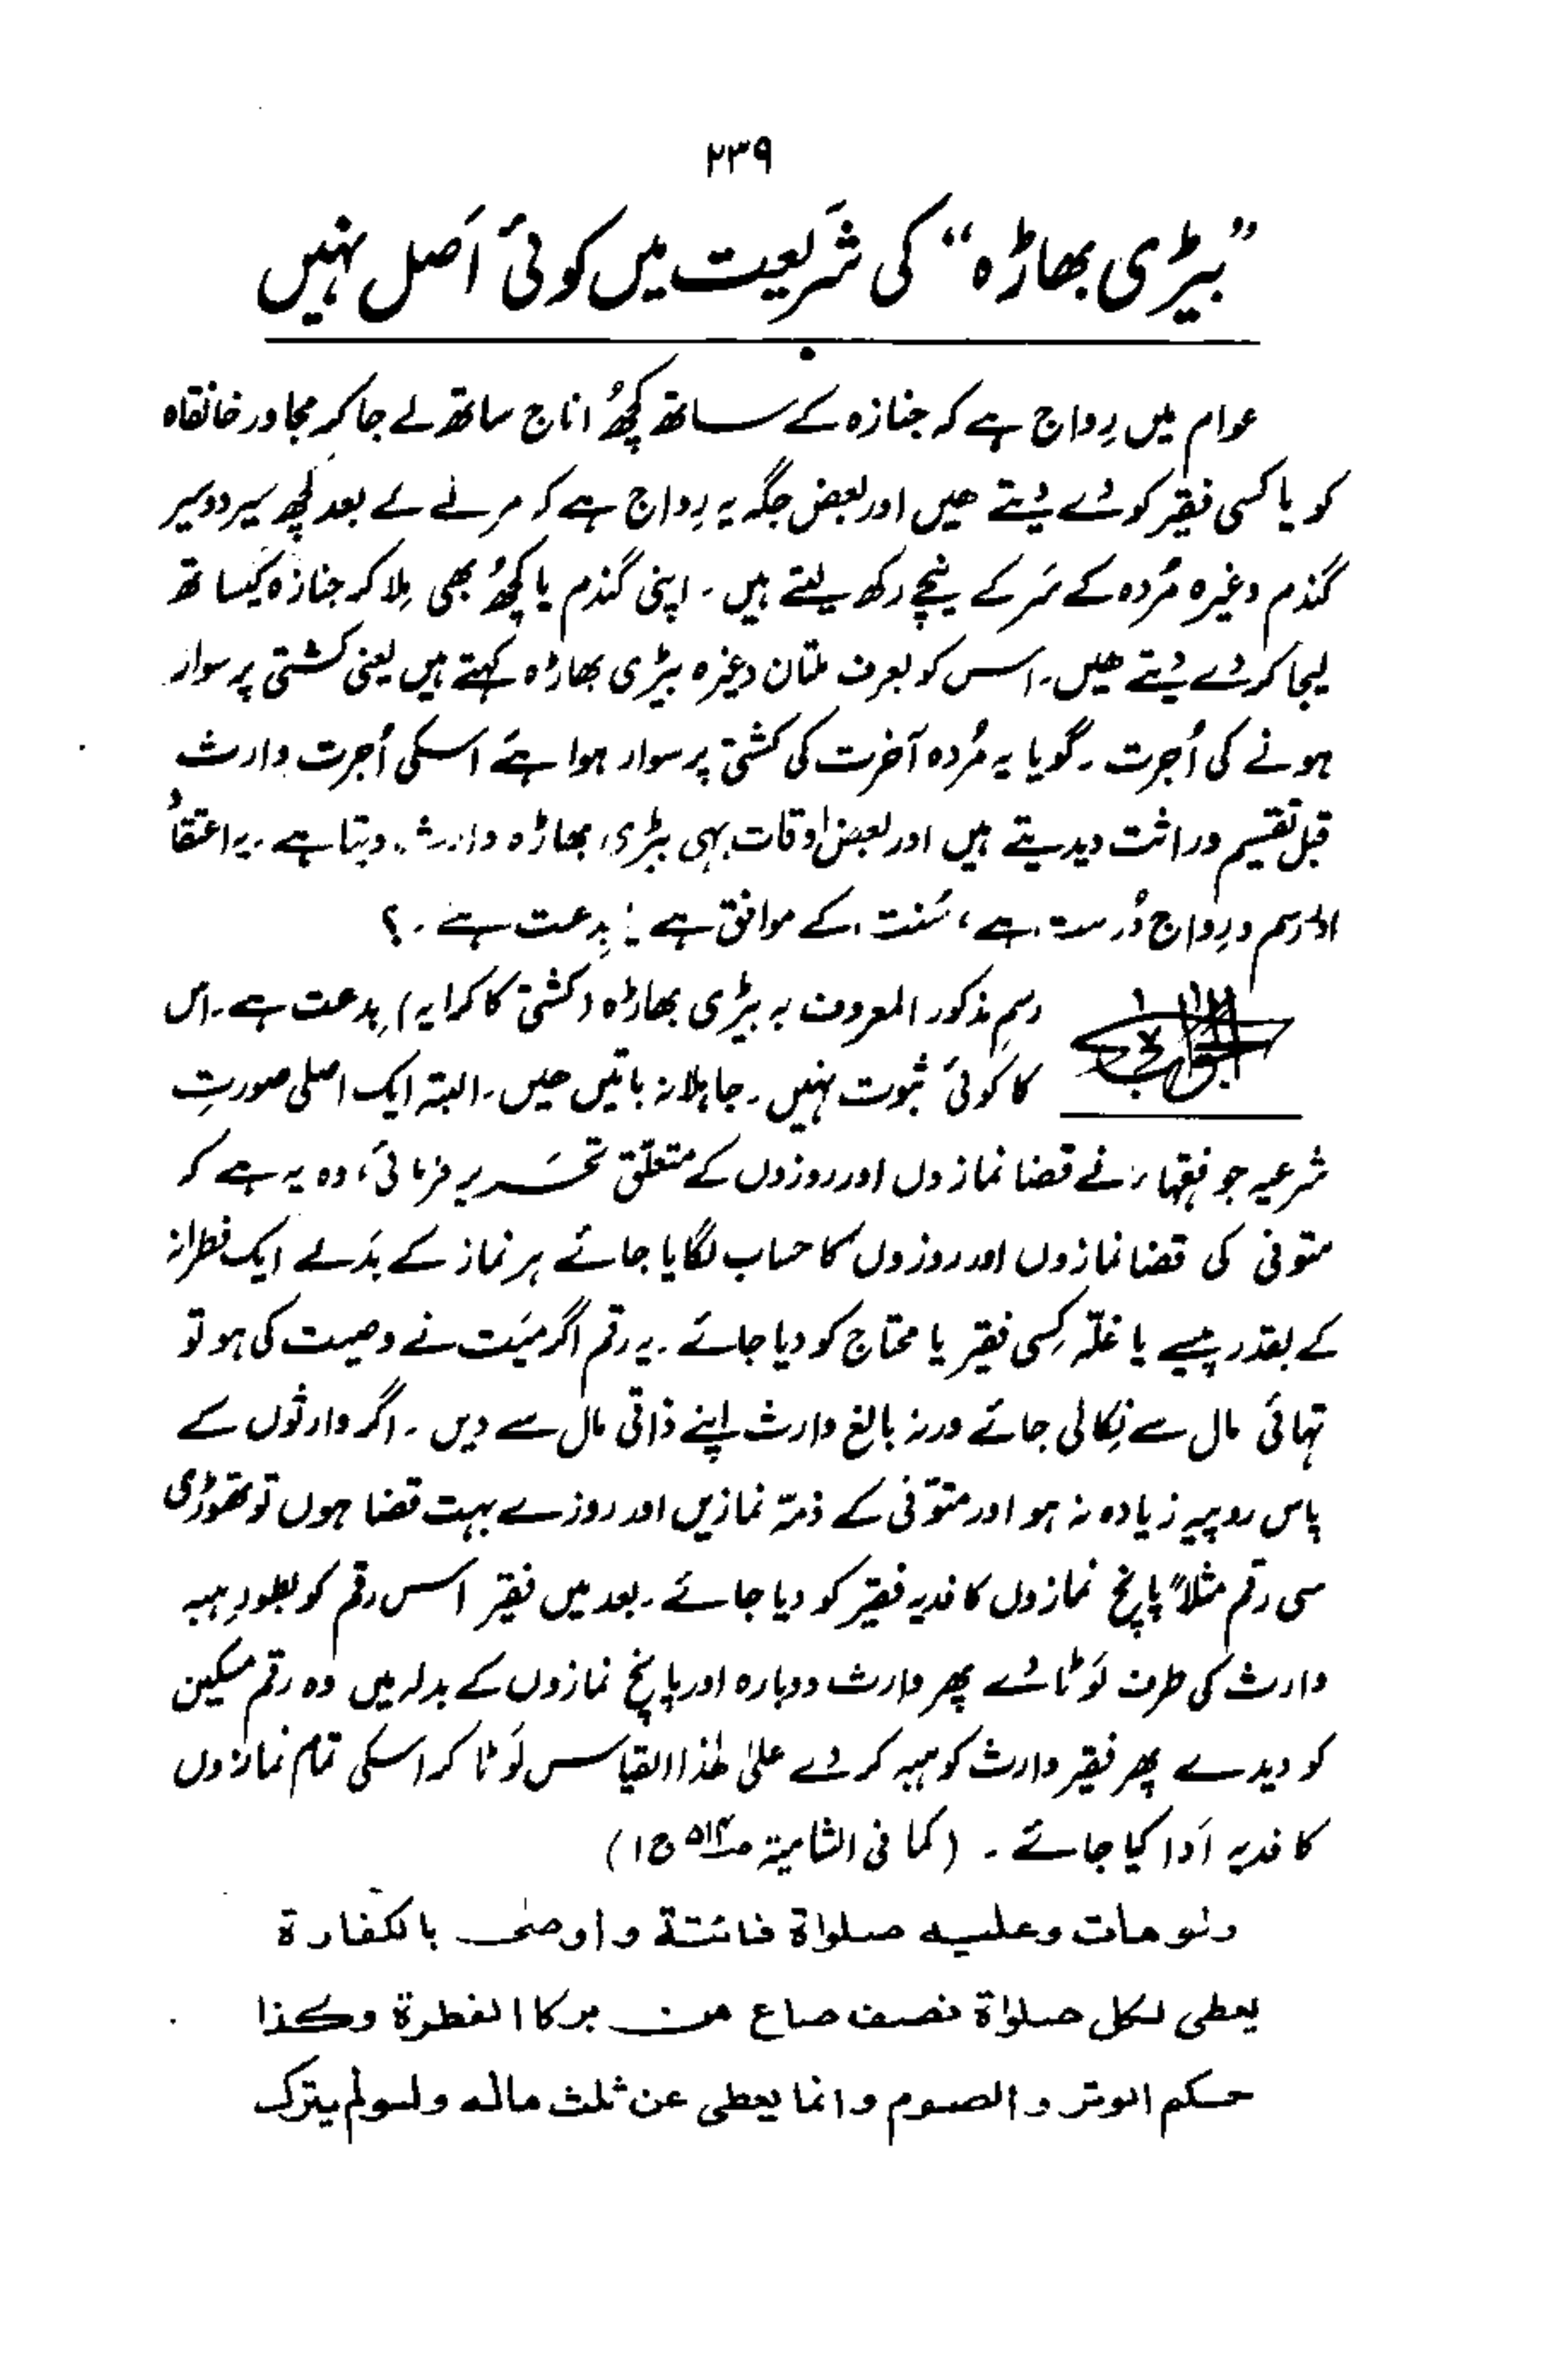 ۲۳۹
”بیڑی بھاڑہ“ کی شریعت میں کوئی اَصل نہیں
عوام میں رِواج ہے کہ جنازہ کے ساتھ کچھُ اناج ساتھ لے جا کر مجاور خانقاہ
کو یا کسی فقیر کو دے دیتے ھیں اور بعض جگہ یہ رِواج ہے کہ مرنے کے بعد کچھ سیر دو سیر
گندم وغیرہ مُردہ کے سَر کے نیچے رکھ لیتے ہیں ۔ اپنی گندم یا کچھُ بھی مِلا کر جنازہ کیساتھ
لیجا کر دے دیتے ھیں۔ اس کو بعرف ملتان وغیرہ بیڑی بھاڑہ کہتے ہیں یعنی کشتی پر سوار
ہونے کی اُجرت ۔ گویا یہ مُردہ آخرت کی کشتی پر سوار ہوا ہے اسکی اُجرت وارث
قبل تقسیم وراثت دیدیتے ہیں اور بعض اوقات یہی بیڑی بھاڑہ وارث دیتا ہے ۔ یہ اعتقاد
اور رسم و رِواج دُرست ہے ، سُنت کے موافق ہے یا بِدعت ہے ۔ ؟
الجواب رسمِ مذکور المعروف بہ بیڑی بھاڑہ (کشتی کا کرایہ) بِدعت ہے ۔ اس
کا کوئی ثبوت نہیں ۔ جاہلانہ باتیں ھیں ۔ البتہ ایک اصلی صورتِ
شرعیہ جو فقہاء نے قضا نمازوں اور روزوں کے متعلّق تحریر فرمائی، وہ یہ ہے کہ
متوفی کی قضا نمازوں اور روزوں کا حساب لگایا جائے ہر نماز کے بدَلے ایک فطرانہ
کے بقدر پیسے یا غلّہ کِسی فقیر یا محتاج کو دیا جائے ۔ یہ رقم اگر میّت نے وصیت کی ہو تو
تہائی مال سے نِکالی جائے ورنہ بالغ وارث اپنے ذاتی مال سے دیں ۔ اگر وارثوں کے
پاس روپیہ زیادہ نہ ہو اور متوّفی کے ذمّہ نمازیں اور روزے بہت قضا ہوں تو تھوڑی
سی رقم مثلاً پانچ نمازوں کا فدیہ فقیر کو دیا جائے ۔ بعد میں فقیر اس رقم کو بطورِ ہبہ
وارث کی طرف لَوٹا دے پھر وارث دوبارہ اور پانچ نمازوں کے بدلہ میں وہ رقم مسکین
کو دیدے پھر فقیر وارث کو ہبہ کر دے علیٰ ھٰذا القیاس لَوٹا کر اسکی تمام نمازوں
کا فدیہ اَدا کیا جائے ۔ (کما فی الشامیۃ صـ۵۱۴ ج۱)
ولو مات وعلیہ صلواة فائتة و أوصٰی بالکفارة
یعطی لکل صلوٰاة نصف صاع من برکا الفطرة وکذا
حکم الوتر و الصوم و انما یعطی عن ثلث مالہ ولو لم یترک